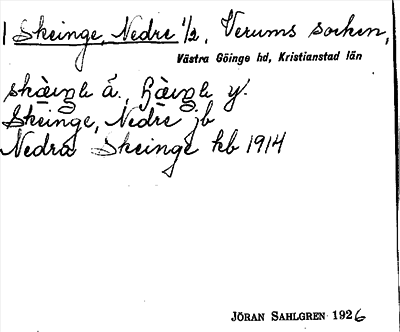 Skeinge, Nedre 1/2, Verums socken,
Västra Göinge hd, Kristianstad län
å. y.
Skeinge, Nedre jb
Nedra Skeinge kb 1914
JÖRAN SAHLGREN 1926